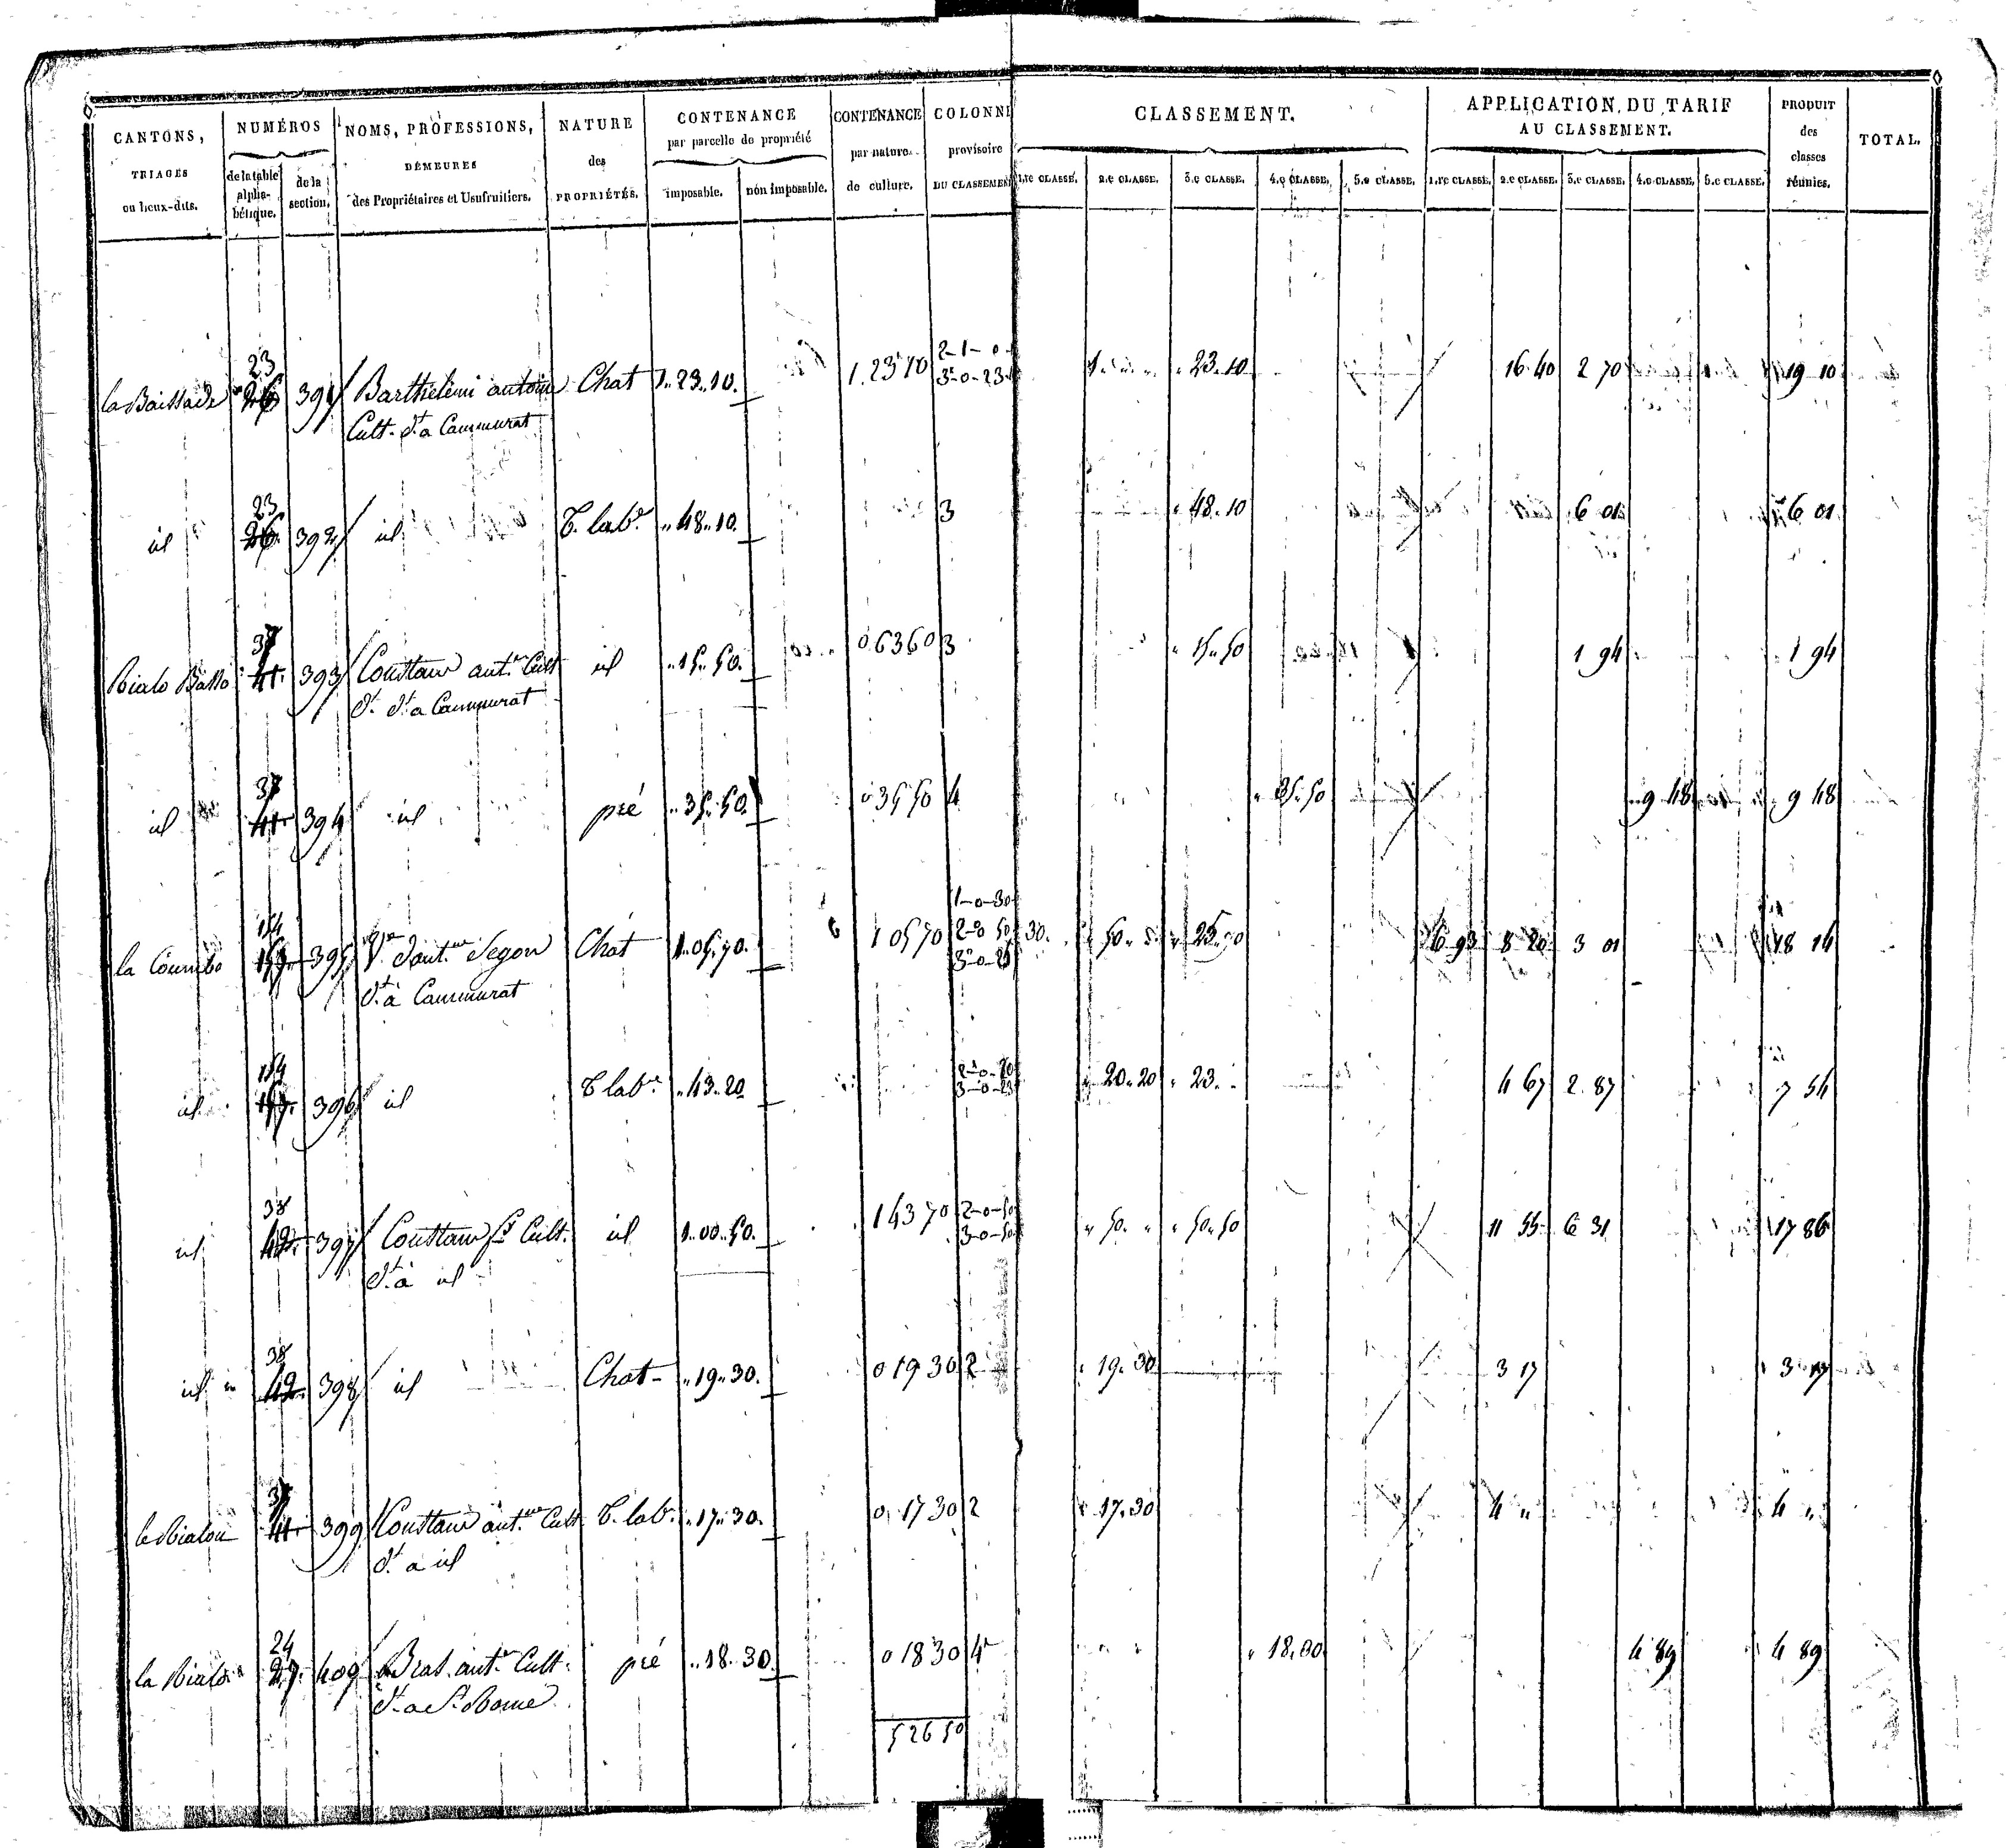 CANTONS, TRIAGES ou lieux-dits.
NUMÉROS
de la table alphabétique.
de la section.
NOMS, PROFESSIONS, DEMEURES des Propriétaires et Usufruitiers.
NATURE des PROPRIÉTÉS.
CONTENANCE par parcelle de propriété
imposable.
non imposable.
CONTENANCE par nature de culture.
COLONNE provisoire DU CLASSEMENT
CLASSEMENT.
1.re CLASSE. 2.e CLASSE. 3.e CLASSE. 4.e CLASSE. 5.e CLASSE.
APPLICATION DU TARIF AU CLASSEMENT.
1.re CLASSE. 2.e CLASSE. 3.e CLASSE. 4.e CLASSE. 5.e CLASSE.
PRODUIT des classes réunies.
TOTAL.
23
la Baissade 26 391 Barthelemi antoine Chat 1. 23. 10. 1. 23 10 2-1-0 1. " " " 23. 10 16 40 2 70 19 10
Cult. dt a Cammurat 3-0-23
23
id 26 392 id T. labe " 48. 10. 3 " 48. 10 6 01 6 01
37
Rialo Basso 41 393 Constans ant.ne Cult id " 15. 50. 0 63 60 3 " 15. 50 1 94 1 94
dt a Cammurat
37
id 41 394 id pré " 35. 50. 0 35 50 4 " 35. 50 9 48 9 48
154 1-0-30
la Coumbo 395 Ve d'ant.ne Segon Chat 1. 05. 70. 1 05 70 2-0-50 30. " 50. " " 25. 70 6 93 8 20 3 01 18 14
dt à Cammurat 3-0-25
154 2-0-20
id 396 id T labe " 43. 20 3-0-23 " 20. 20 " 23. " 4 67 2 87 7 54
38
id 42 397 Constans Cult. id 1. 00. 50. 1 43 70 2-0-50 " 50. " " 50. 50 11 55 6 31 17 86
dt à id 3-0-50
38
id 42 398 id Chat " 19. 30. 0 19 30 2 " 19. 30 3 17 3 17
37
le Rialou 41 399 Constans ant.ne Cult T. labe " 17. 30. 0 17 30 2 " 17. 30 4 " 4 "
dt a id
24
la Rialo 27 400 Bras ant.ne Cult. pré " 18. 30. 0 18 30 4 " 18. 30 4 89 4 89
dt a St Rome
5 26 50